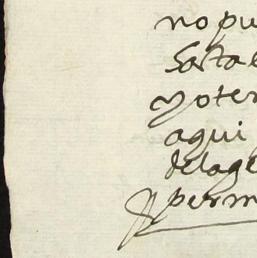 no pu
Sa ta
y oter
aqui
delage
perm